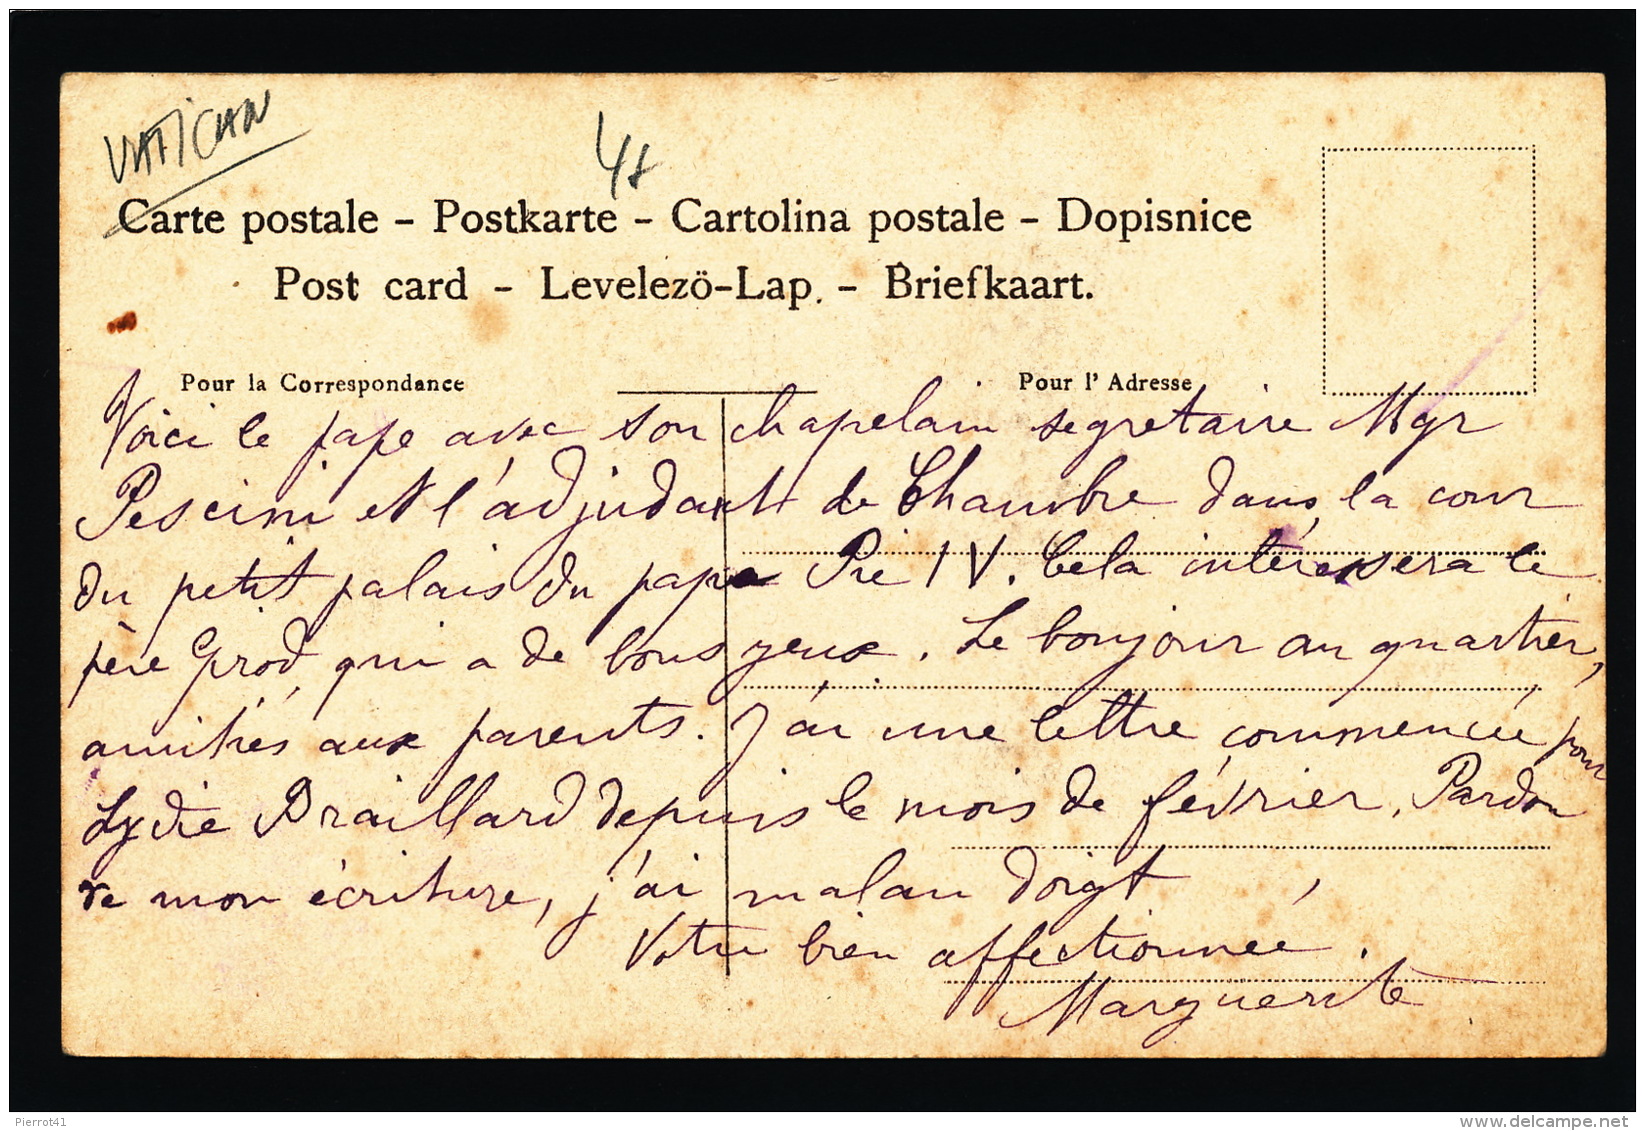 VATICAN
48
Carte postale – Postkarte – Cartolina postale – Dopisnice
Post card – Levelezö-Lap. – Briefkaart.
Pour la Correspondance
Pour l' Adresse
Voici le pape avec son chapelain segretaire Mgr
Pescini et l'adjudant de Chambre dans la cour
du petit palais du pape Pie IV. Cela intéressera le
père Grod, qui a de bons yeux. Le bonjour au quartier,
amitiés aux parents. J'ai une lettre commencée pour
Lydie Draillard depuis le mois de février. Pardon
de mon écriture, j'ai mal au doigt
Votre bien affectionnée.
Marguerite
Pierrot41
www.delcampe.net